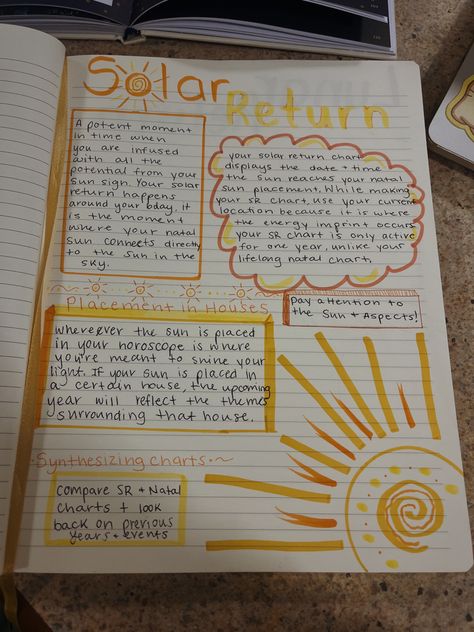 Solar
Return
A potent moment
in time when
you are infused
with all the
potential from your
sun sign. Your solar
return happens
around your bday. It
is the moment
where your natal
sun connects directly
to the sun in the
sky.
your solar return chart
displays the date + time
the sun reaches your natal
sun placement. While making
your SR chart, use your current
location because it is where
the energy imprint occurs
your SR chart is only active
for one year, unlike your
lifelong natal chart.
Placement in Houses
Pay attention to
the Sun + Aspects!
Wherever the sun is placed
in your horoscope is where
you're meant to shine your
light. If your sun is placed in
a certain house, the upcoming
year will reflect the themes
surrounding that house.
Synthesizing charts
Compare SR + Natal
charts + look
back on previous
years + events